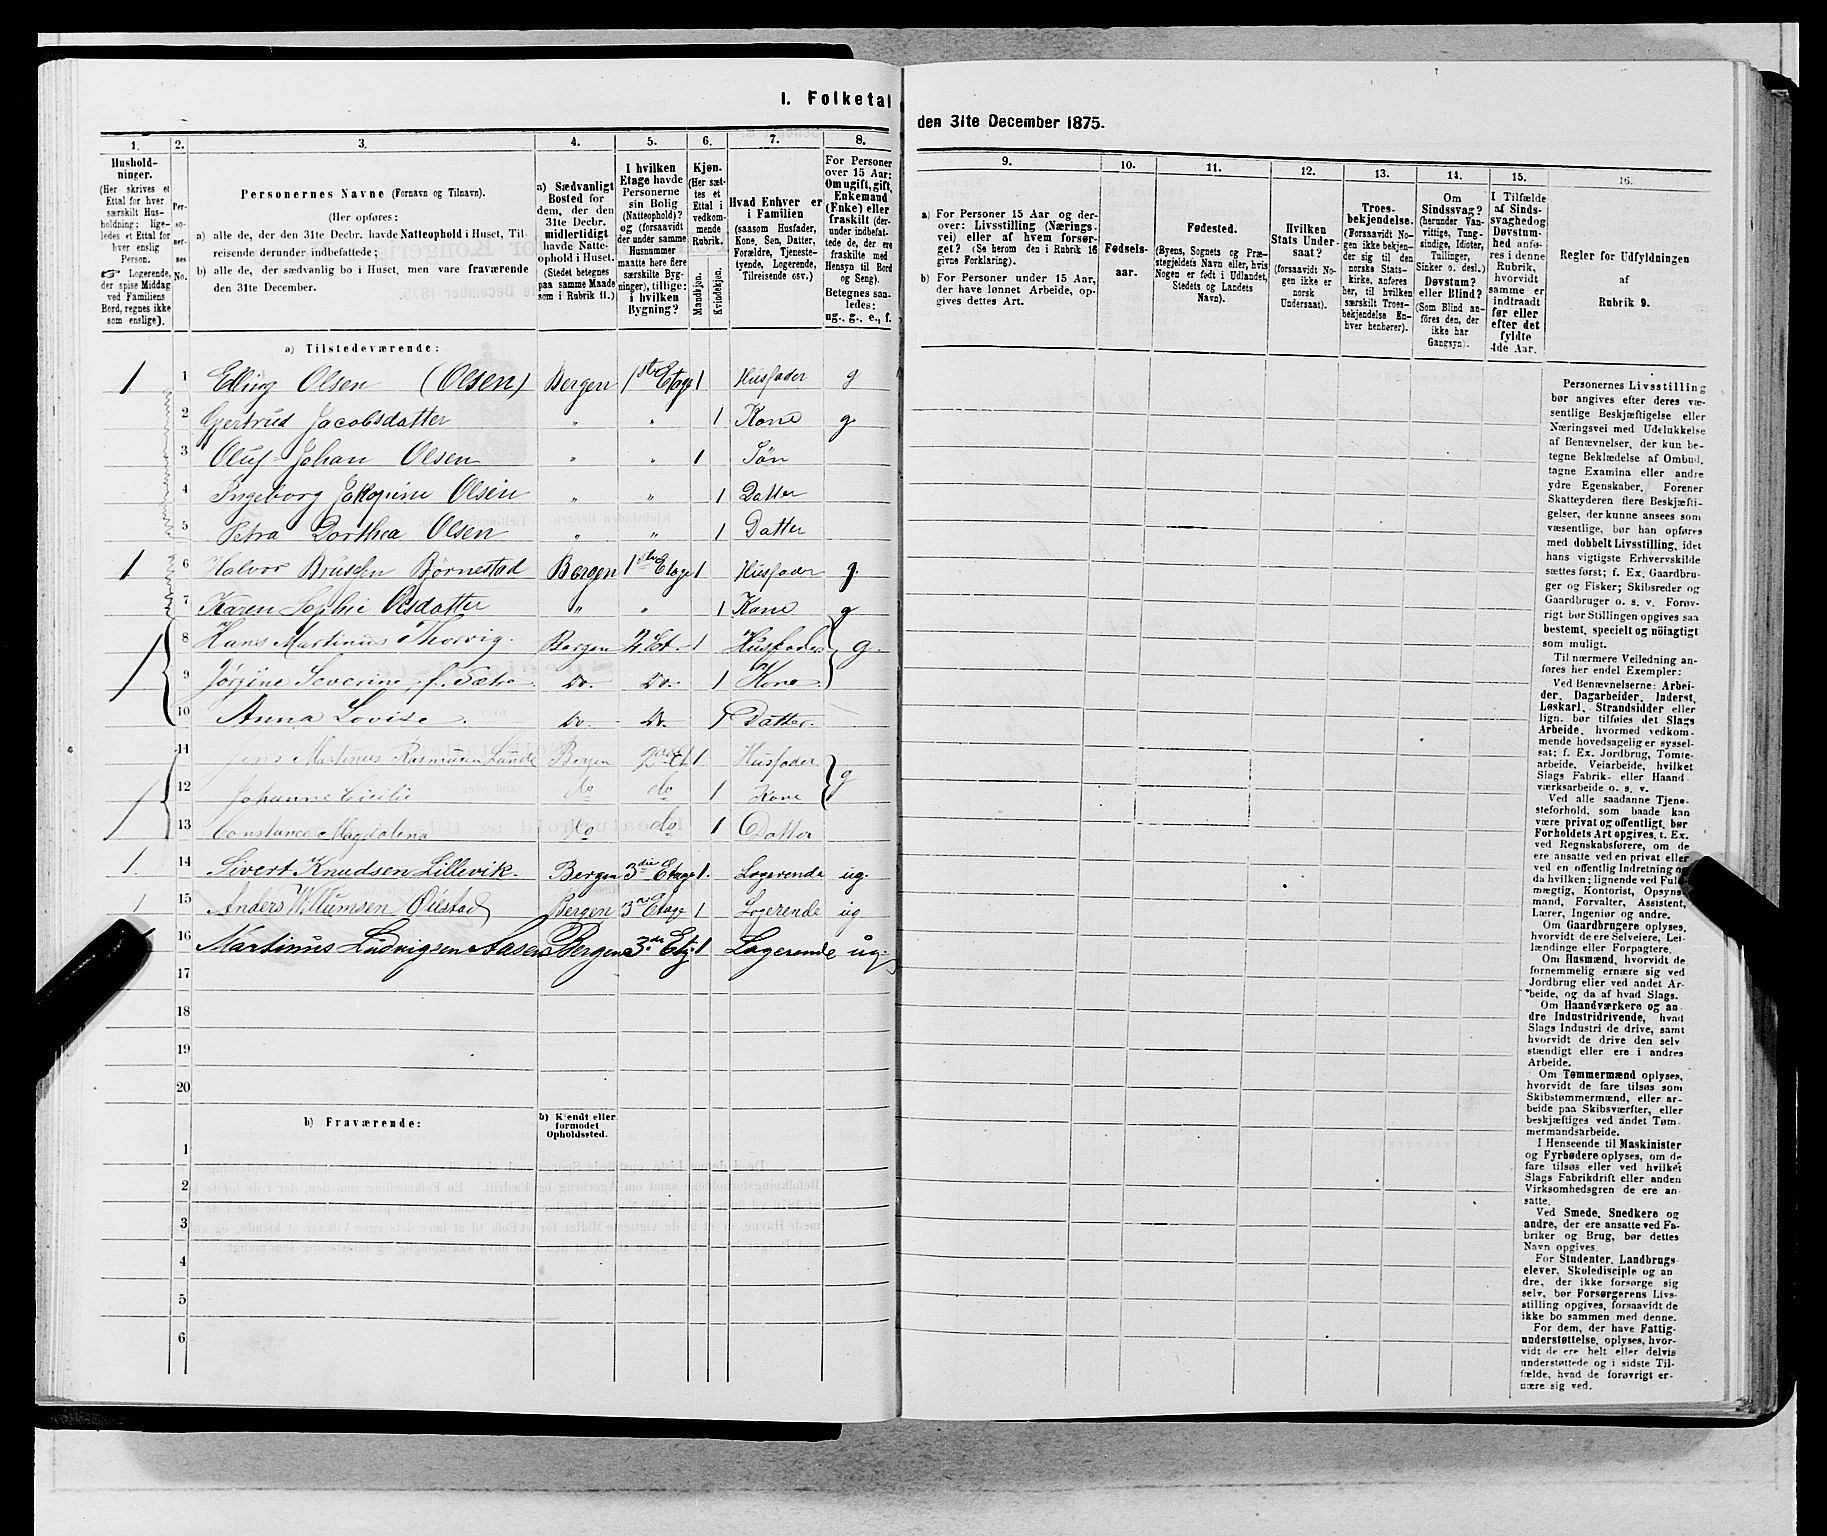 I. Folketal
den 31te December 1875.
1.
Hushold-
ninger.
(Her skrives et
Ettal for hver
særskilt Hus-
holdning; lige-
ledes et Ettal for
hver enslig
Person.
☞ Logerende,
der spise Middag
ved Familiens
Bord, regnes ikke
som enslige).
2.
Per-
so-
ner-
nes
No.
3.
Personernes Navne (Fornavn og Tilnavn).
(Her opføres:
a) alle de, der den 31te Decbr. havde Natteophold i Huset, Til-
reisende derunder indbefattede;
b) alle de, der sædvanlig bo i Huset, men vare fraværende
den 31te December.
4.
a) Sædvanligt
Bosted for
dem, der den
31te Decbr.
midlertidigt
havde Natte-
ophold i Huset.
(Stedet betegnes
paa samme Maade
som i Rubrik 11.)
5.
I hvilken
Etage havde
Personerne
sin Bolig
(Natteophold)?
og (forsaavidt
der under samme
Husnummer
maatte høre flere
særskilte Byg-
ninger), tillige:
i hvilken
Bygning?
6.
Kjøn.
(Her sæt-
tes et
Ettal i
vedkom-
mende
Rubrik.
Mandkjøn.
Kvindekjøn.
7.
Hvad Enhver er
i Familien
(saasom Husfader,
Kone, Søn, Datter,
Forældre, Tjeneste-
tyende, Logerende,
Tilreisende osv.)
8.
For Personer
over 15 Aar:
Om ugift, gift,
Enkemand
(Enke) eller
fraskilt (der-
under indbefat-
tede de, der ere
fraskilte med
Hensyn til Bord
og Seng).
Betegnes saa-
ledes:
ug., g., e., f.
9.
a) For Personer 15 Aar og der-
over: Livsstilling (Nærings-
vei) eller af hvem forsør-
get? (Se herom den i Rubrik 16
givne Forklaring).
b) For Personer under 15 Aar,
der have lønnet Arbeide, op-
gives dettes Art.
10.
Fødsels-
aar.
11.
Fødested.
(Byens, Sognets og Præ-
stegjeldets Navn eller, hvis
Nogen er født i Udlandet,
Stedets og Landets
Navn).
12.
Hvilken
Stats Under-
saat?
(forsaavidt No-
gen ikke er
norsk
Undersaat).
13.
Troes-
bekjendelse.
(Forsaavidt No-
gen ikke bekjen-
der sig til den
norske Stats-
kirke, anføres
her, til hvilken
særskilt Troes-
bekjendelse En-
hver henhører).
14.
Om
Sindssvag?
(herunder Van-
vittige, Tung-
sindige, Idioter,
Tullinger,
Sinker o. desl.)
Døvstum?
eller Blind?
(Som Blind an-
føres den, der
ikke har
Gangsyn).
15.
I Tilfælde
af Sinds-
svaghed og
Døvstum-
hed anfø-
res i denne
Rubrik,
hvorvidt
samme er
indtraadt
før eller
efter det
fyldte
4de Aar.
16.
Regler for Udfyldningen
af
Rubrik 9.
a) Tilstedeværende:
1 1 Elling Olsen (Olsen) Bergen 1ste Etage 1 Husfader g
2 Gjertrud Jacobsdatter " " 1 Kone g
3 Oluf Johan Olsen " " 1 Søn
4 Ingeborg Jakopine Olsen " " 1 Datter
5 Petra Dorthea Olsen " " 1 Datter
1 6 Halvor Bruseen Bjørnestad Bergen 1ste Etage 1 Husfader g.
7 Karen Sophie " " 1 Kone g
1 8 Hans Martinus Thorvig. Bergen 2. Et. 1 Husfader g.
9 Jørgine Severine f. Sætre Do. Do. 1 Kone.
10 Anna Lovise. Do. Do. 1 Datter.
1 11 Jens Martinus Rasmusen Lunde Bergen 2den Et 1 Husfader g
12 Johanne Cicilie do do 1 Kone
13 Constance Magdalena do do 1 Datter
1. 14 Sivert Knudsen Lillevik. Bergen 3die Etage 1. Logerende ug.
1 15 Anders Willumsen Øustad Bergen 3die Etage 1 Logerende ug
1 16 Martinus Ludvigsen Aasen Bergen 3die Etg 1 Logerende ug.
17
18
19
20
b) Fraværende:
b) Kjendt eller
formodet
Opholdssted.
1
2
3
4
5
6
Personernes Livsstilling
bør angives efter deres væ-
sentlige Beskjæftigelse eller
Næringsvei med Udelukkelse
af Benævnelser, der kun be-
tegne Beklædelse af Ombud,
tagne Examina eller andre
ydre Egenskaber. Forener
Skatteyderen flere Beskjæfti-
gelser, der kunne ansees som
væsentlige, bør han opføres
med dobbelt Livsstilling, idet
hans vigtigste Erhvervskilde
sættes først; f. Ex. Gaardbru-
ger og Fisker; Skibsreder og
Gaardbruger o. s. v. Forøv-
rigt bør Stillingen opgives saa
bestemt, specielt og nöiagtigt
som muligt.
Til nærmere Veiledning an-
føres her endel Exempler:
Ved Benævnelserne: Arbei-
der, Dagarbeider, Inderst,
Løskarl, Strandsidder eller
lign. bør tilføies det Slags
Arbeide, hvormed vedkom-
mende hovedsagelig er syssel-
sat; f. Ex. Jordbrug, Tomte-
arbeide, Veiarbeide, hvilket
Slags Fabrik- eller Haand
værksarbeide o. s. v.
Ved alle saadanne Tjene-
steforhold, som baade kan
være privat og offentligt, bør
Forholdets Art opgives, t. Ex.
ved Regnskabsførere, om de
ere ansatte ved en privat eller
ved en offentlig Indretning og
da hvilken; lignende ved Fuld-
mægtig, Kontorist, Opsyns-
mand, Forvalter, Assistent,
Lærer, Ingeniør og andre.
Om Gaardbrugere oplyses,
hvorvidt de ere Selveiere, Lei-
lændinge eller Forpagtere.
Om Husmænd, hvorvidt de
fornemmelig ernære sig ved
Jordbrug eller ved andet Ar-
beide, og da af hvad Slags.
Om Haandværkere og an
dre Industridrivende, hvad
Slags Industri de drive, samt
hvorvidt de drive den selv
stændigt eller ere i andres
Arbeide.
Om Tømmermænd oplyses,
hvorvidt de fare tilsøs som
Skibstømmermænd, eller ar-
beide paa Skibsværfter, eller
beskjæftiges ved andet Tøm-
mermandsarbeide.
I Henseende til Maskinister
og Fyrbødere oplyses, om de
fare tilsøs eller ved hvilket
Slags Fabrikdrift eller anden
Virksomhedsgren de ere an-
satte.
Ved Smede, Snedkere og
andre, der ere ansatte ved Fa-
briker og Brug, bør dettes
Navn opgives.
For Studenter, Landbrugs
elever, Skoledisciple og an
dre, der ikke forsørge sig
selv, bør Forsørgerens Livs-
stilling opgives, forsaavidt de
ikke bo sammen med denne.
For dem, der have Fattig-
understøttelse, oplyses, hvor-
vidt de ere helt eller delvis
understøttede og i sidste Til-
fælde, hvad de forøvrigt er-
nære sig ved.